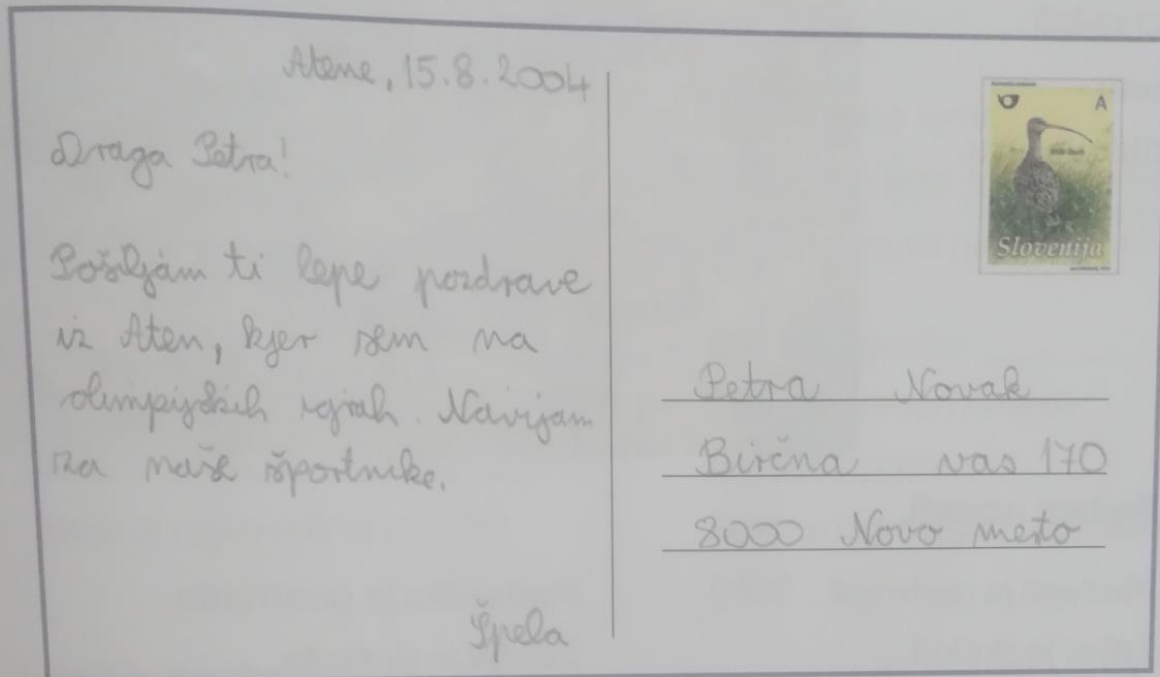 Atene, 15.8.2004
Draga Petra!
Pošiljam ti lepe pozdrave
iz Aten, kjer sem na
olimpijskih igrah. Navijam
za naše športnike.
Špela
A
Slovenija
Petra Novak
Birčna vas 170
8000 Novo mesto